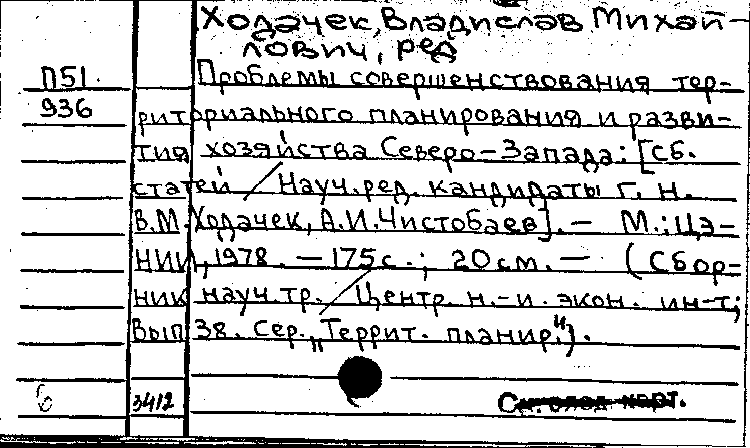 Ходачек, Владислав Михай-
лович, ред
П51
936
Проблемы совершенствования тер-
риториального планирования и разви-
тия хозяйства Северо-Запада: [сб.
статей / Науч. ред. кандидаты г. н.
В.М. Ходачек, А.И. Чистобаев]. — М.: ЦЭ-
НИИ, 1978. — 175 с.; 20 см. — (Сбор-
ник науч. тр. / Центр. н.-и. экон. ин-т;
Вып 38. Сер. „Террит. планир.").
3412
См. след карт.